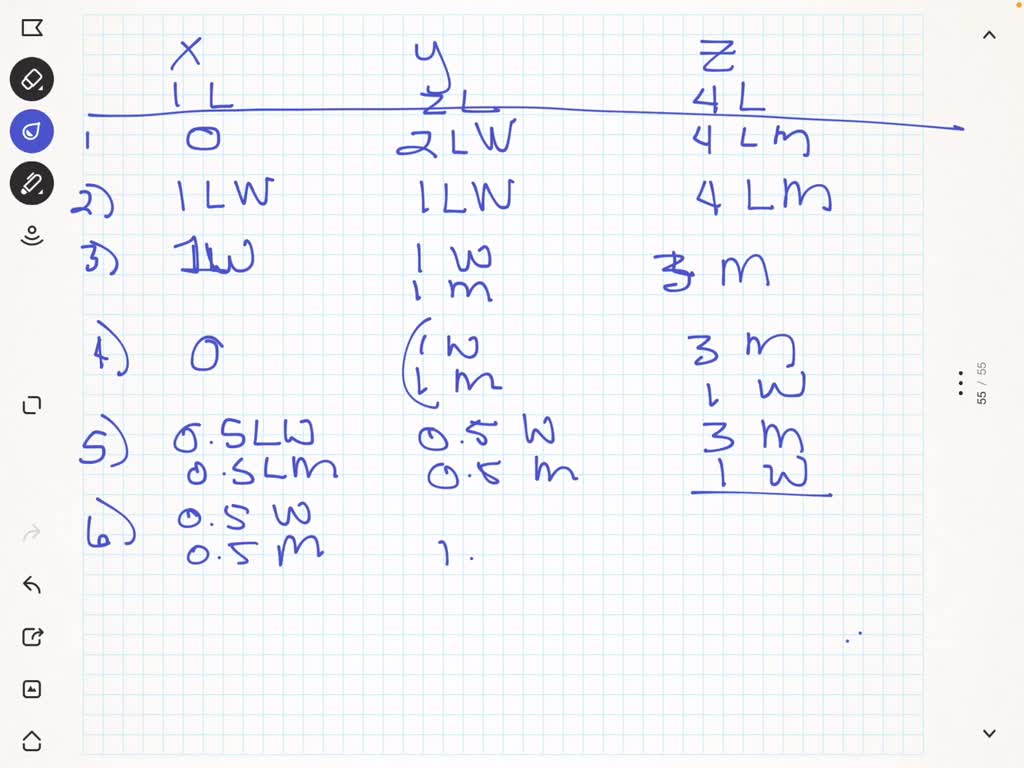 X y Z
1 L 2 L 4 L
1 0 2 L W 4 L m
2) 1 L W 1 L W 4 L m
3) 1W 1 W 3 M
1 m
4) 0 (1 W 3 m
1 m 1 W
5) 0.5 L W 0.5 W 3 m
0.5 L m 0.5 m 1 W
6) 0.5 W
0.5 M 1.
55 / 55